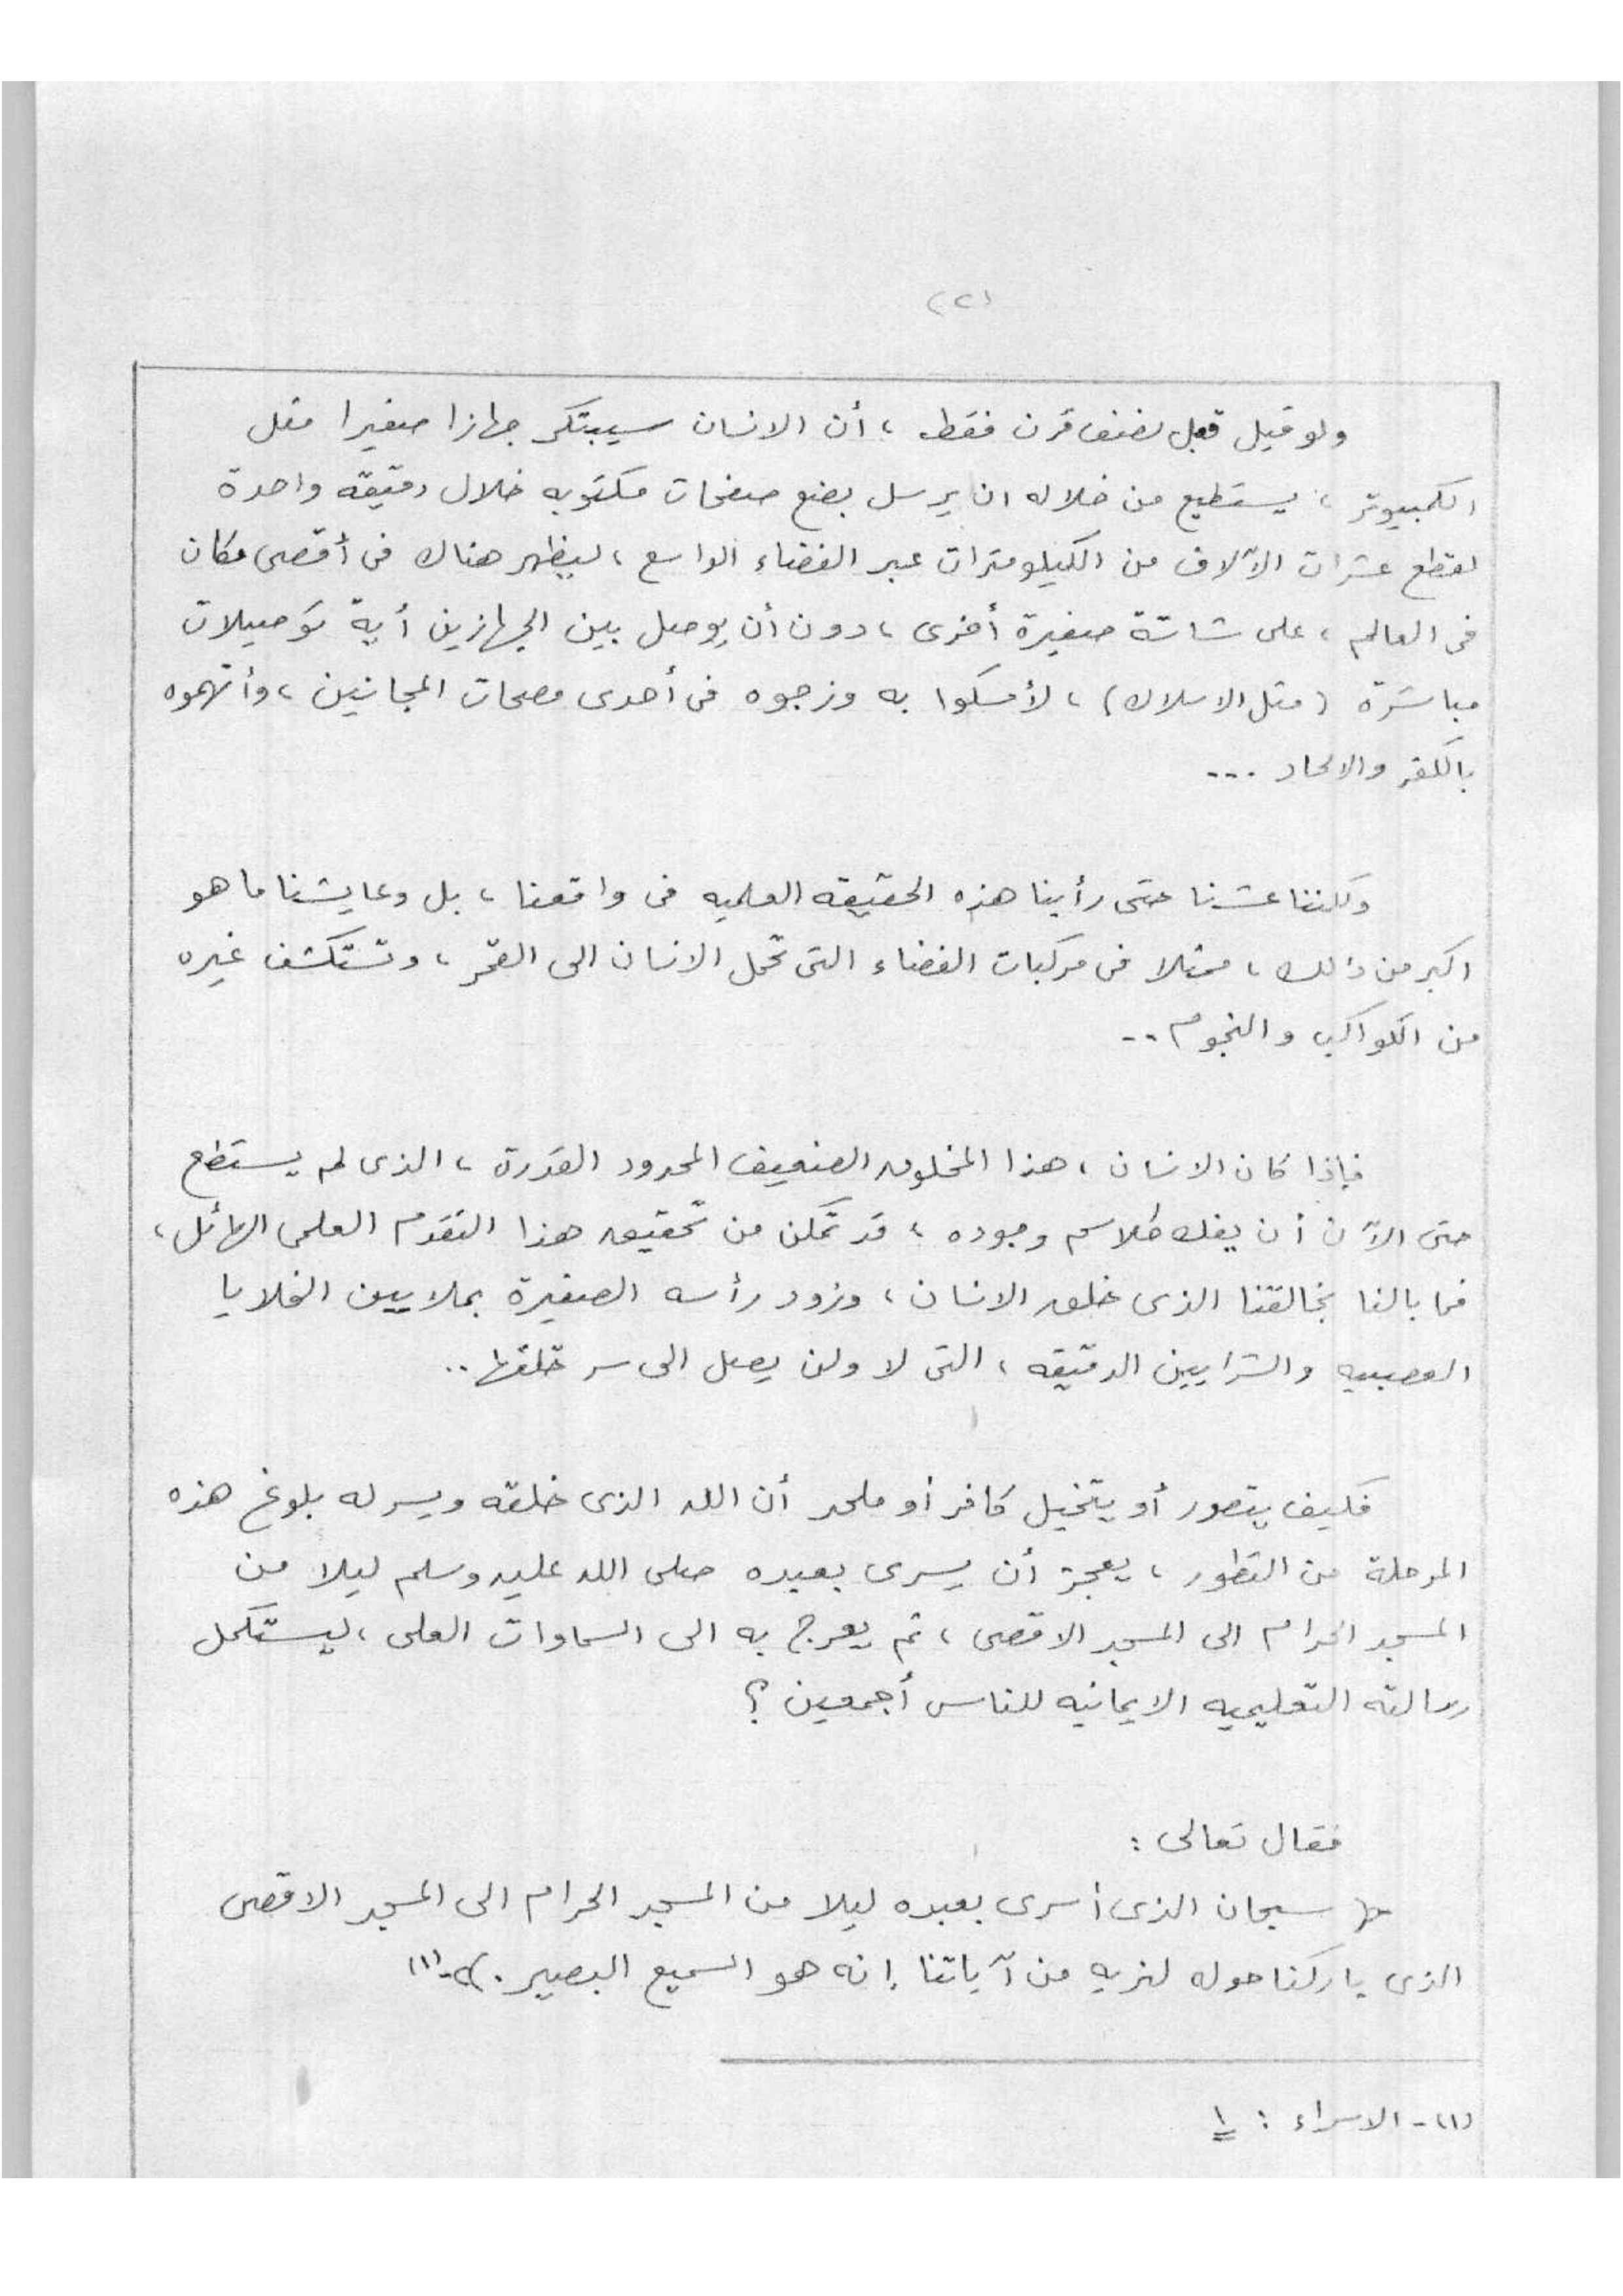 (٢)
ولو قيل قبل نصف قرن فقط ، أن الانسان سيبتكر جهازا صغيرا مثل
الكمبيوتر ، يستطيع من خلاله ان يرسل بضع صفحات مكتوبه خلال دقيقة واحدة
لقطع عشرات الآلاف من الكيلومترات عبر الفضاء الواسع ، ليظهر هناك فى أقصى مكان
فى العالم ، على شاشة صغيرة أخرى ، دون أن يوصل بين الجهازين أية توصيلات
مباشرة (مثل الاسلاك) ، لأمسكوا به وزجوه فى أحدى مصحات المجانين ، وأتهموه
بالكفر والالحاد ...
ولكننا عشنا حتى رأينا هذه الحقيقه العلميه فى واقعنا ، بل وعايشنا ما هو
اكبر من ذلك ، ممثلا فى مركبات الفضاء التى تحمل الانسان الى القمر ، وتستكشف غيره
من الكواكب والنجوم ..
فإذا كان الانسان ، هذا المخلوق الضعيف المحدود القدرة ، الذى لم يستطع
حتى الآن أن يفك طلاسم وجوده ، قد تمكن من تحقيق هذا التقدم العلمى الهائل ،
فما بالنا بخالقنا الذى خلق الانسان ، وزود رأسه الصغيرة بملايين الخلايا
العصبيه والشرايين الدقيقه ، التى لا ولن يصل الى سر خلقها ..
فكيف يتصور أو يتخيل كافر أو ملحد أن الله الذى خلقه ويسر له بلوغ هذه
المرحلة من التطور ، يعجز أن يسرى بعبده صلى الله عليه وسلم ليلا من
المسجد الحرام الى المسجد الاقصى ، ثم يعرج به الى السماوات العلى ، ليستكمل
رسالته التعليميه الايمانيه للناس أجمعين ؟
فقال تعالى :
﴿ سبحان الذى أسرى بعبده ليلا من المسجد الحرام الى المسجد الاقصى
الذى باركنا حوله لنريه من آياتنا إنه هو السميع البصير . ﴾ - (١)
(١) - الاسراء : ١